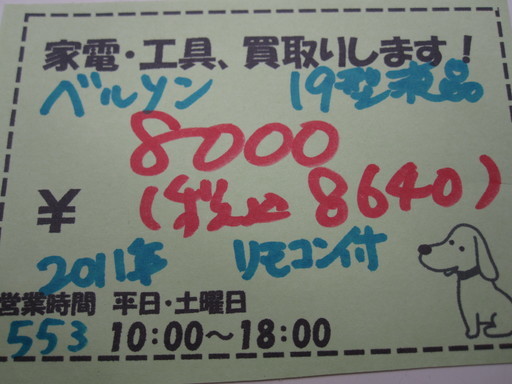 家電・工具、買取りします!
ベルソン 19型液晶
8000
¥ (税込 8640)
2011年 リモコン付
営業時間 平日・土曜日
553 10:00～18:00